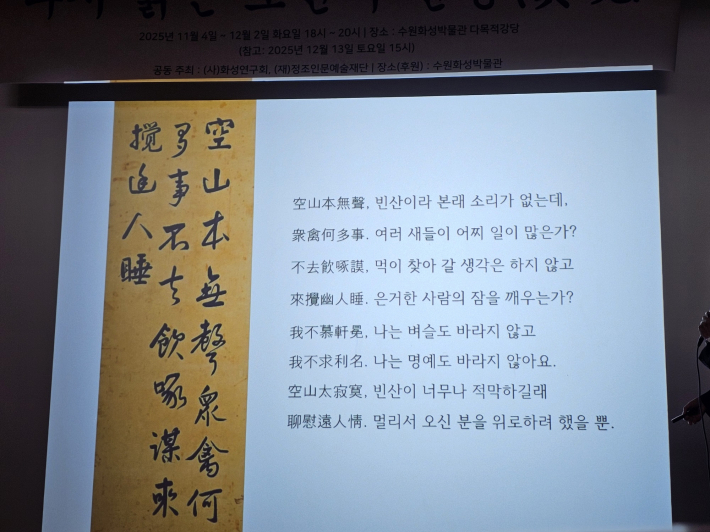 2025년 11월 4일 ~ 12월 2일 화요일 18시 ~ 20시 | 장소 : 수원화성박물관 다목적강당
(참고: 2025년 12월 13일 토요일 15시)
공동 주최 : (사)화성연구회, (재)정조인문예술재단 | 장소(후원) : 수원화성박물관
空山本無聲衆禽何
多事不去飲啄謀來
攪幽人睡
空山本無聲, 빈산이라 본래 소리가 없는데,
衆禽何多事. 여러 새들이 어찌 일이 많은가?
不去飮啄謨, 먹이 찾아 갈 생각은 하지 않고
來攪幽人睡. 은거한 사람의 잠을 깨우는가?
我不慕軒冕, 나는 벼슬도 바라지 않고
我不求利名. 나는 명예도 바라지 않아요.
空山太寂寞, 빈산이 너무나 적막하길래
聊慰遠人情. 멀리서 오신 분을 위로하려 했을 뿐.